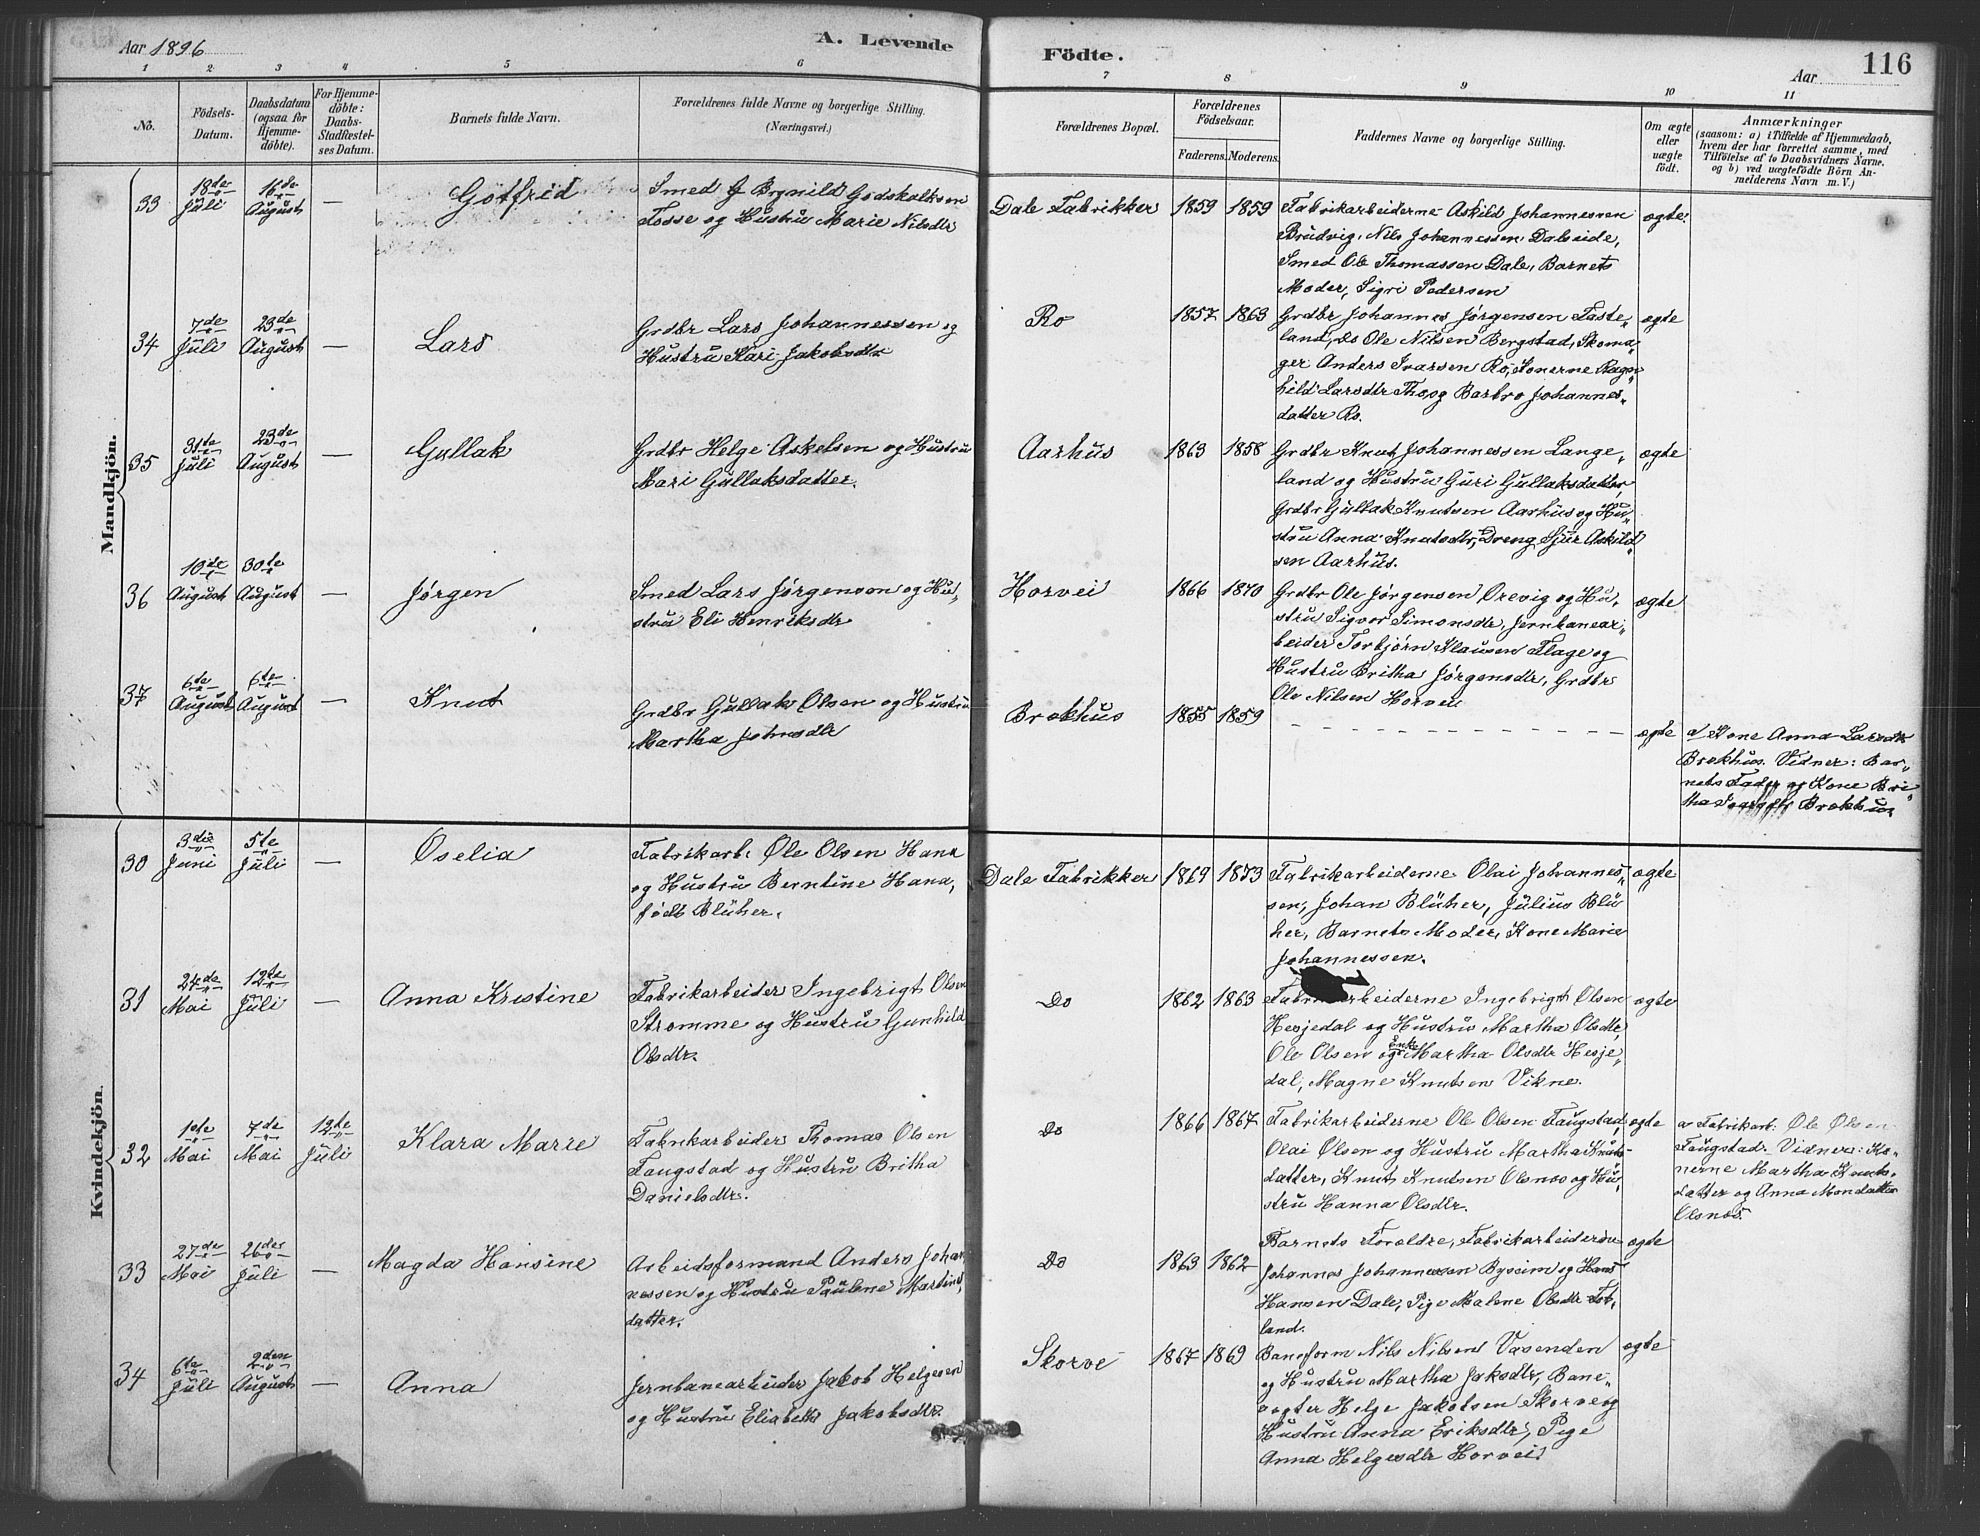 Aar 1896
A. Levende
Födte.
Aar
116
1 2 3 4 5 6 7 8 9 10 11
No.
Födsels-
Datum.
Daabsdatum
(ogsaa for
Hjemme-
döbte).
For Hjemme-
döbte:
Daabs-
Stadfæstel-
ses Datum.
Barnets fulde Navn.
Forældrenes fulde Navne og borgerlige Stilling.
(Næringsvei.)
Forældrenes Bopæl.
Forældrenes
Födselsaar.
Faderens. Moderens.
Faddernes Navne og borgerlige Stilling.
Om ægte
eller
uægte
födt.
Anmærkninger
(saasom: a) i Tilfælde af Hjemmedaab,
hvem der har forrettet samme, med
Tilföielse af to Daabsvidners Navne.
og b) ved uægtefödte Börn An-
melderens Navn m. V.)
Mandkjön.
33
18de
Juli
16de
August
—
Gotfrid
Smed Brynild Godskalksen
Fosse og Hustru Marie Nilsdtr
Dale Fabrikker
1859 1859
Fabrikarbeiderne Askild Johannessen
Brudvig, Nils Johannessen Daleide,
Smed Ole Thomassen Dale, Barnets
Moder, Sigri Pedersen
ægte.
34
7de
Juli
23de
August
—
Lars
Grdbr Lars Johannessen og
Hustru Kari Jakobsdtr
Ro
1857 1863
Grdbr Johannes Jørgensen Faste-
land, Do Ole Nilsen Bergstad, Skoma-
ger Anders Ivarsen Ro, Konerne Ragn-
hild Larsdtr Tho, og Barbro Johannes-
datter Ro.
ægte
35
31te
Juli
23de
August
—
Gullak
Grdbr Helge Askelsen og Hustru
Mari Gullaksdatter.
Aarhus
1863 1858
Grdbr Knut Johannessen Lange-
land og Hustru Guri Gullaksdatter,
Grdbr Gullak Knutsen Aarhus og Hu-
stru Anna Knutsdtr, Dreng Sjur Askild-
sen Aarhus.
ægte
36
10de
August
30te
August
—
Jørgen
Smed Lars Jørgenson og Hu-
stru Eli Henriksdtr
Horvei
1866 1870
Grdbr Ole Jørgensen Örevig og Hu-
stru Sigvor Simonsdtr, Jernbanear-
beider Torbjørn Klausen Flage og
Hustru Britha Jørgensdtr, Grdbr
Ole Nilsen Horvei
ægte
37
6te
August
6te
August
—
Knut
Grdbr Gullak Olsen og Hustru
Martha Johnsdtr
Brekhus
1855 1859
- - - - - - - - - - - - - -
ægte
a/ Kone Anna Larsdtr
Brekhus. Vidner: Bar-
nets Fader og Kone Bri-
tha Brekhus
Kvindekjön.
30
3die
Juni
5te
Juli
—
Oselia
Fabrikarb. Ole Olsen Hana
og Hustru Berntine Hana,
født Blüher.
Dale Fabrikker
1869 1873
Fabrikarbeiderne Olai Johannes-
sen, Johan Blüher, Julius Blü
her, Barnets Moder, Kone Marie
Johannessen.
ægte
31
24de
Mai
12te
Juli
—
Anna Kristine
Fabrikarbeider Ingebrigt Olsen
Strømme og Hustru Gunhild
Olsdtr.
Do
1862 1863
Fabrikarbeiderne Ingebrigt Olsen
Hesjedal og Hustru Martha Olsdtr,
Ole Olsen og Enke Martha Olsdtr Hesje-
dal, Magne Knutsen Vikne.
ægte
32
1ste
Mai
7de
Mai
12te
Juli
Klara Marie
Fabrikarbeider Thomas Olsen
Faugstad og Hustru Britha
Danielsdtr.
Do
1866 1867
Fabrikarbeiderne Ole Olsen Faugstad
Olai Olsen og Hustru Martha Knuts-
datter, Knut Knutsen Olsnes og Hu-
stru Hanna Olsdtr.
ægte
a/ Fabrikarb. Ole Olsen
Faugstad. Vidner: Ko-
nerne Martha Knuts-
datter og Anna Monsdatter
Olsnes.
33
27de
Mai
26de
Juli
—
Magda Hansine
Arbeidsformand Anders Johan-
nessen og Hustru Pauline Martins-
datter.
Do
1863 1862
Barnets Forældre, Fabrikarbeiderne
Johannes Johannessen Byseim og Hans
Hansen Dale, Pige Malene Olsdtr
land.
ægte
34
6te
Juli
2den
August
—
Anna
Jernbanearbeider Jakob Helgesen
og Hustru Elisabeth Jakobsdtr.
Skorve
1867 1869
Baneform Nils Nilsen Vasenden
og Hustru Martha Jaksdtr, Bane-
vogter Helge Jakobsen Skorve og
Hustru Anna Eriksdtr, Pige
Anna Helgesdtr Horvei.
ægte